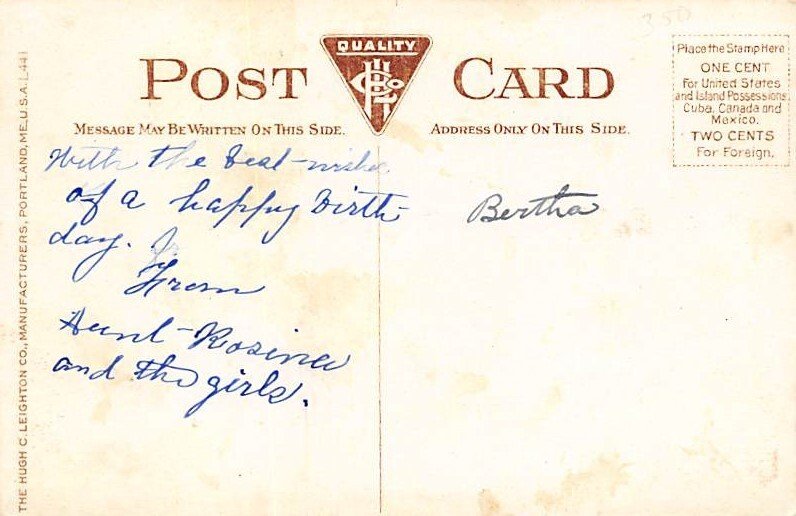 350
QUALITY
POST CARD
MESSAGE MAY BE WRITTEN ON THIS SIDE.
ADDRESS ONLY ON THIS SIDE.
Place the Stamp Here
ONE CENT
For United States
and Island Possessions,
Cuba, Canada and
Mexico.
TWO CENTS
For Foreign.
With the best-wishes
of a happy Birth-
day.
From
Aunt-Rosina
and the girls.
Bertha
THE HUGH C. LEIGHTON CO., MANUFACTURERS, PORTLAND, ME., U.S.A. L 441